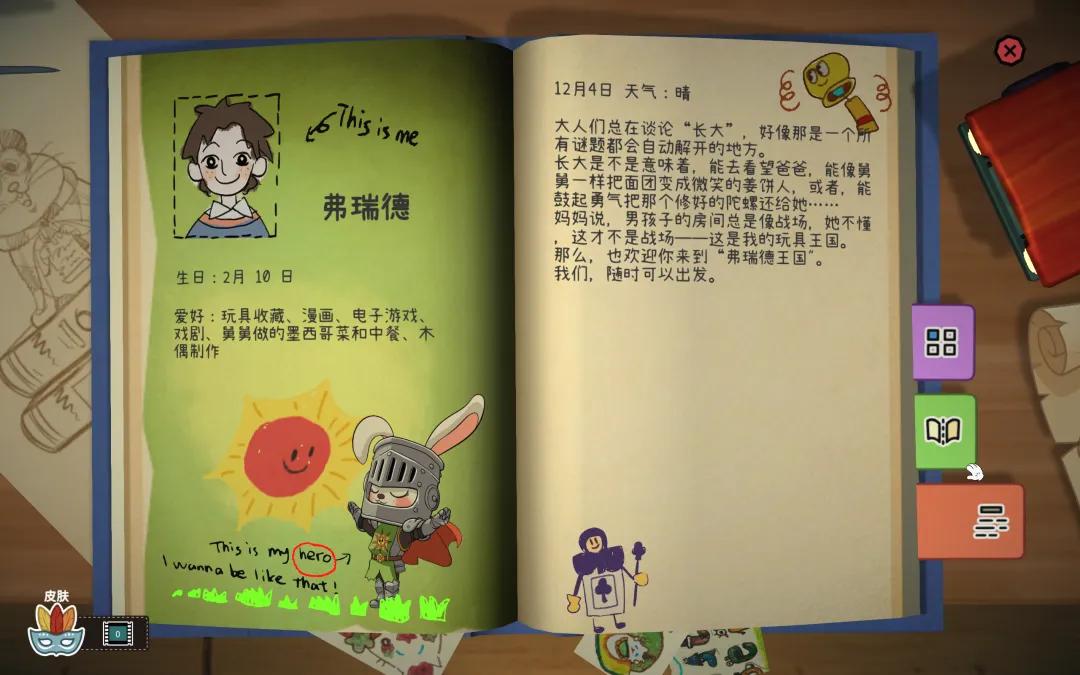 This is me
弗瑞德
生日：2月 10 日
爱好：玩具收藏、漫画、电子游戏、
戏剧、舅舅做的墨西哥菜和中餐、木
偶制作
This is my hero
I wanna be like that!
12月4日 天气：晴
大人们总在谈论“长大”，好像那是一个所
有谜题都会自动解开的地方。
长大是不是意味着，能去看望爸爸，能像舅
舅一样把面团变成微笑的姜饼人，或者，能
鼓起勇气把那个修好的陀螺还给她……
妈妈说，男孩子的房间总是像战场，她不懂
，这才不是战场——这是我的玩具王国。
那么，也欢迎你来到“弗瑞德王国”。
我们，随时可以出发。
皮肤
0